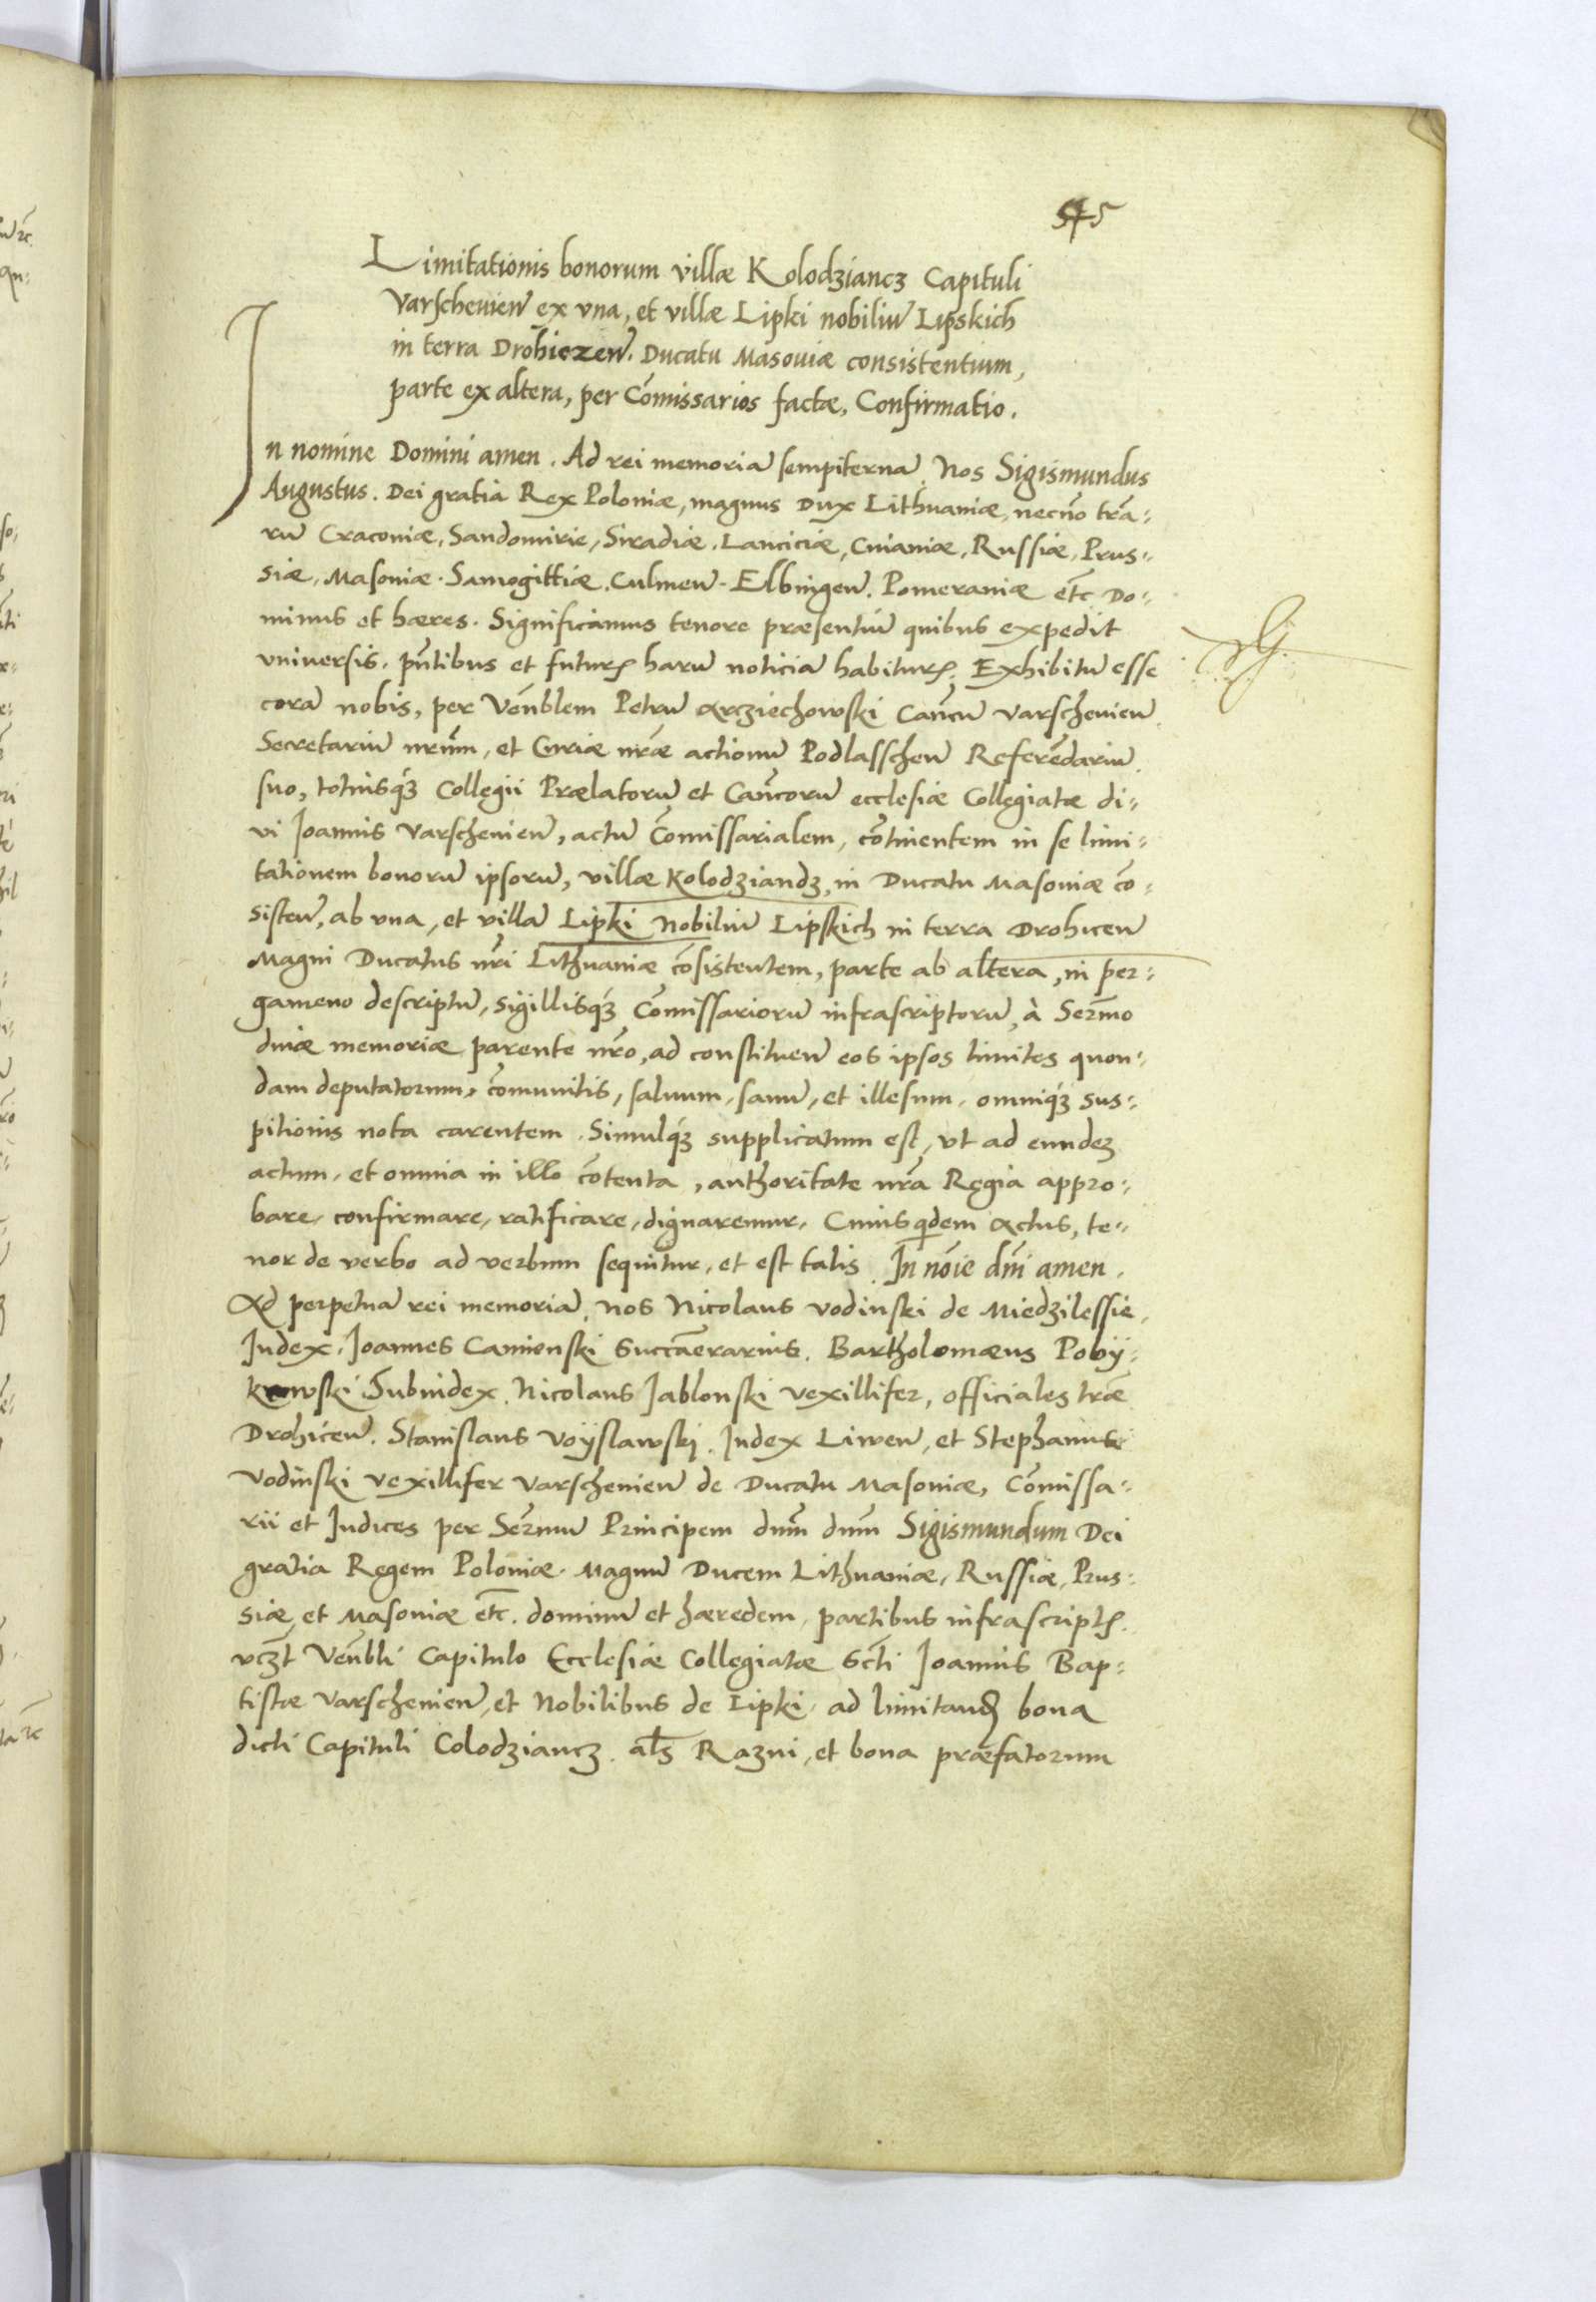 545
Limitationis bonorum villæ Kolodziancz Capituli
Varscheuien̄ ex vna, et villæ Lipki nobiliū Lipskich
in terra Drohiczen̄. Ducatu Masouiæ consistentium,
parte ex altera, per Cōmissarios factæ, Confirmatio.
In nomine Domini amen. Ad rei memoriā sempiternā. Nos Sigismundus
Augustus. Dei gratia Rex Poloniæ, magnus Dux Lithuaniæ, necnō trā-
rū Cracouiæ, Sandomirię, Siradiæ, Lanciciæ, Cuiauiæ, Russiæ, Prus-
siæ, Masouiæ. Samogittiæ. Culmen̄. Elbingen̄. Pomeraniæ etc̄ Do-
minus et hæres. Significamus tenore præsentiū quibus expedit
vniuersis. pn̄tibus et futurꝭ harū noticiā habiturꝭ. Exhibitū esse
corā nobis, per Vēnblem Petrū Arcziechowski Can̄cū Varscheuien̄
Secretariū nrūm, et Curiæ nrǣ actionū Podlasschen̄ Referēdariū
suo, totiusq́ꝫ Collegii Prælatorū et Can̄corū ecclesiæ Collegiatæ di-
vi Joannis Varscheuien̄, actū Cōmissarialem, cōtinentem in se limi-
tationem bonorū ipsorū, villæ Kolodziandz, in Ducatu Masouiæ cō-
sisten̄, ab vna, et villā Lipki Nobiliū Lipskich in terra Drohicen̄
Magni Ducatus nrī Lithuaniæ cōsistentem, parte ab altera, in per-
gameno descriptū, sigillisq́ꝫ Cōmissariorū infrascriptorū, à Serm̄o
diuæ memoriæ parente nrō, ad constituen̄ eos ipsos limites quon-
dam deputatorum, cōmunitis, saluum, sanū, et illesum, omniq́ꝫ sus-
pitionis nota carentem. Simulq́ꝫ supplicatum est, vt ad eundeꝫ
actum, et omnia in illo cōtenta, authoritate nrā Regia appro-
bare, confirmare, ratificare, dignaremur. Cuius qͥdem Actus, te-
nor de verbo ad verbum sequitur, et est talis. In nōie dn̄i amen.
Ad perpetuā rei memoriā, nos Nicolaus Vodinski de Miedzilessie,
Judex, Joannes Camienski Succāerarius. Bartholomæus Poby-
kowski Subiudex. Nicolaus Jablonski vexillifer, officiales trǣ
Drohicen̄. Stanislaus Voyslawski. Judex Liwen̄, et Stephanus
Vodinski vexillifer Varscheuien̄ de Ducatu Masouiæ, Cōmissa-
rii et Judices per Serm̄ū Principem dnūm dnūm Sigismundum Dei
gratia Regem Poloniæ. Magnū Ducem Lithuaniæ, Russiæ, Prus-
siæ, et Masouiæ etc̄. dominū et hæredem, partibus infrascriptꝭ.
vcꝫt Vēnbli Capitulo Ecclesiæ Collegiatæ Sct̄i Joannis Bap-
tistæ Varscheuien̄, et Nobilibus de Lipki, ad limitanꝺ bona
dicti Capituli Colodziancz. als̄ Razni, et bona præfatorum